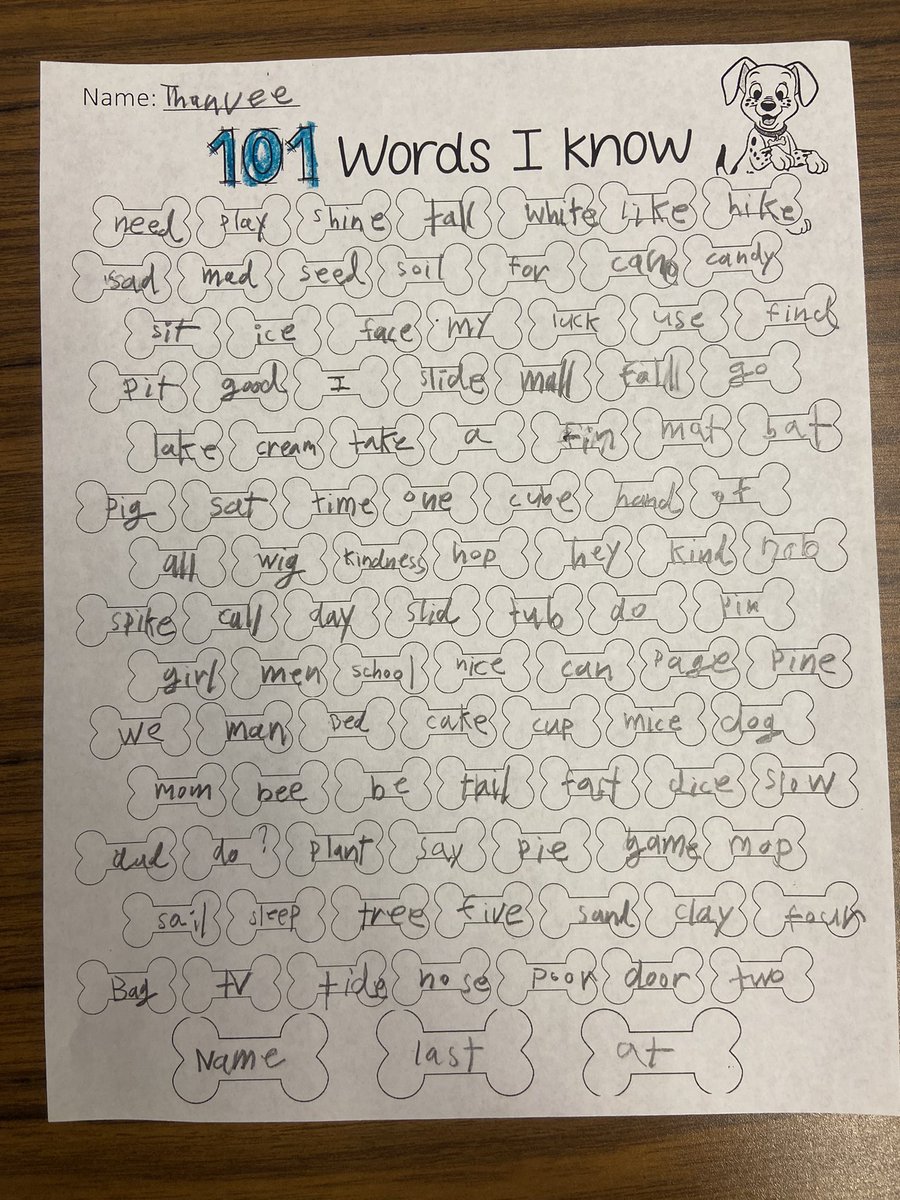 Name: Thanvee
101 Words I know
need play shine tall white like hike
sad mad seed soil for candy
sit ice face my luck use find
pit good I slide mall fall go
lake cream take a fin mat bat
pig sat time one cube hand of
all wig kindness hop hey kind
spike call day slid tub do pin
girl men school nice can Page Pine
we man cake cup mice dog
mom bee be tail fast dice slow
dad do? plant say pie game map
sail sleep tree five sand clay
Bag tv tide nose poor door two
Name last at